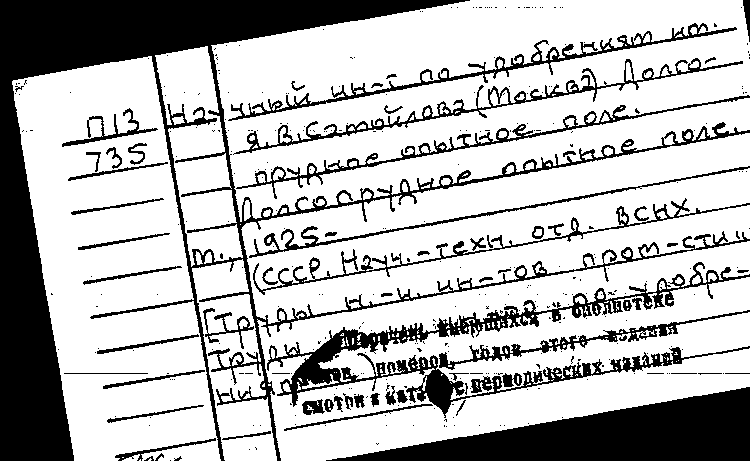 П13
735
Научный ин-т по удобрениям им.
Я. В. Самойлова (Москва). Долго-
прудное опытное поле.
Долгопрудное опытное поле.
М., 1925-
(СССР. Науч.-техн. отд. ВСНХ.
[Труды н.-и. ин-тов пром-сти
Труды по удобре-
ния
Перечень имеющихся в библиотеке
томов, номеров, годов этого издания
смотри в каталоге периодических изданий